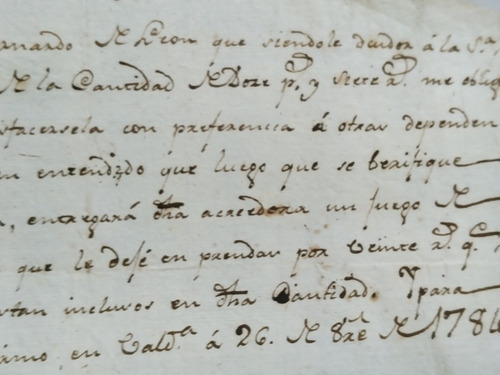 rnardo de Leon que siendole deudor á la S.ª
de la Cantidad de Doze p.s y siete r.s me oblig
sfacersela con preferencia á otras dependen
n entendido que luego que se berifique
entregará dha acreedora un juego de
que le dejé en prendas por veinte r.s q.e
stan inclusos en dha Cantidad. Y para
en Cald.ª á 26. de 8re de 178